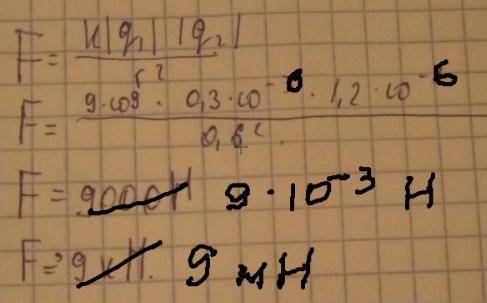 F = k|q₁| |q₂| / r²
F = 9·10⁹ · 0,3·10⁻⁶ · 1,2·10⁻⁶ / 0,6²
F = 9000 Н 9·10⁻³ Н
F = 9 кН. 9 мН